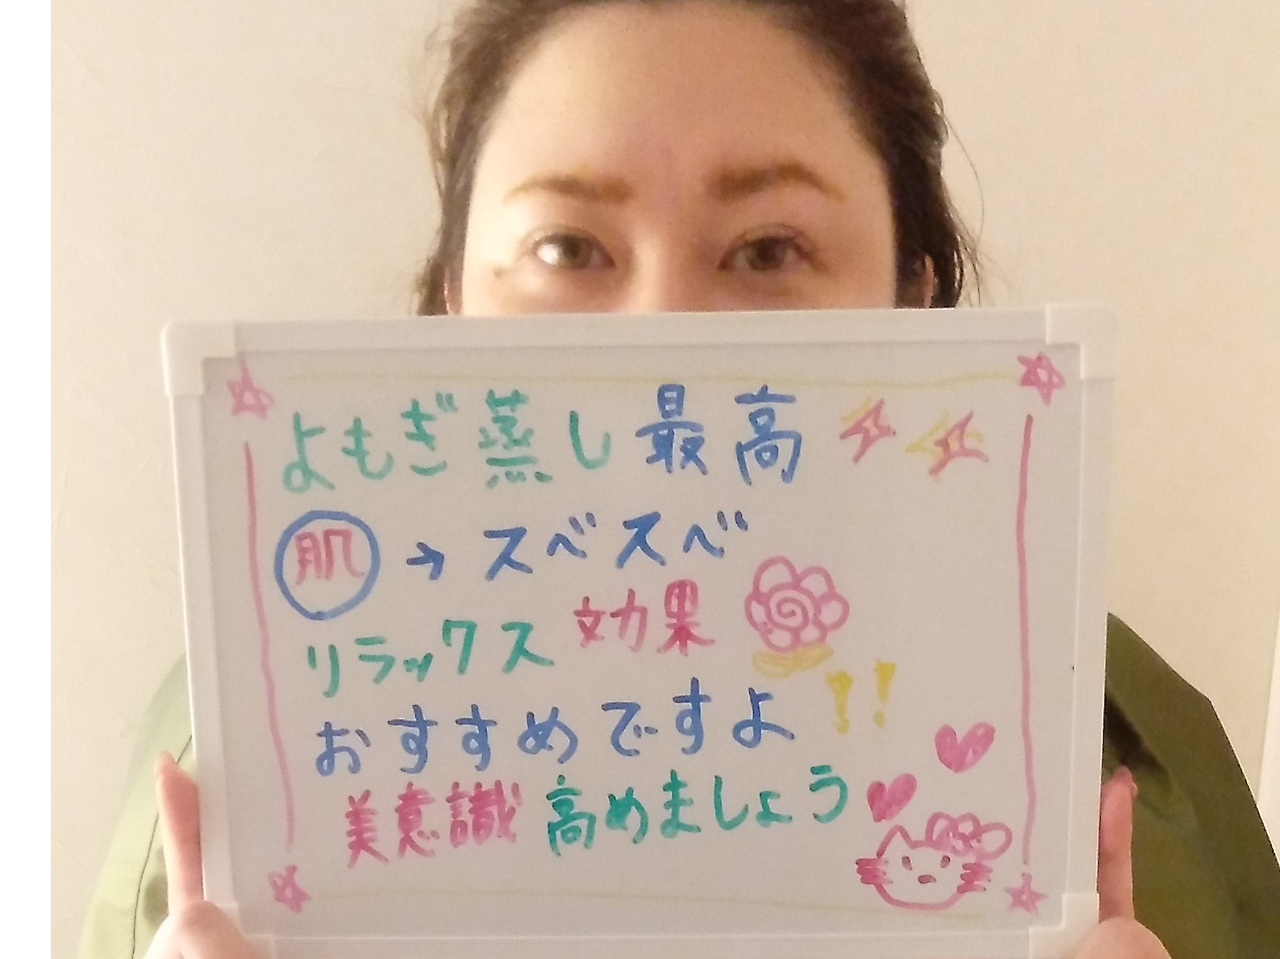 よもぎ蒸し最高
肌→スベスベ
リラックス効果
おすすめですよ!!
美意識高めましょう